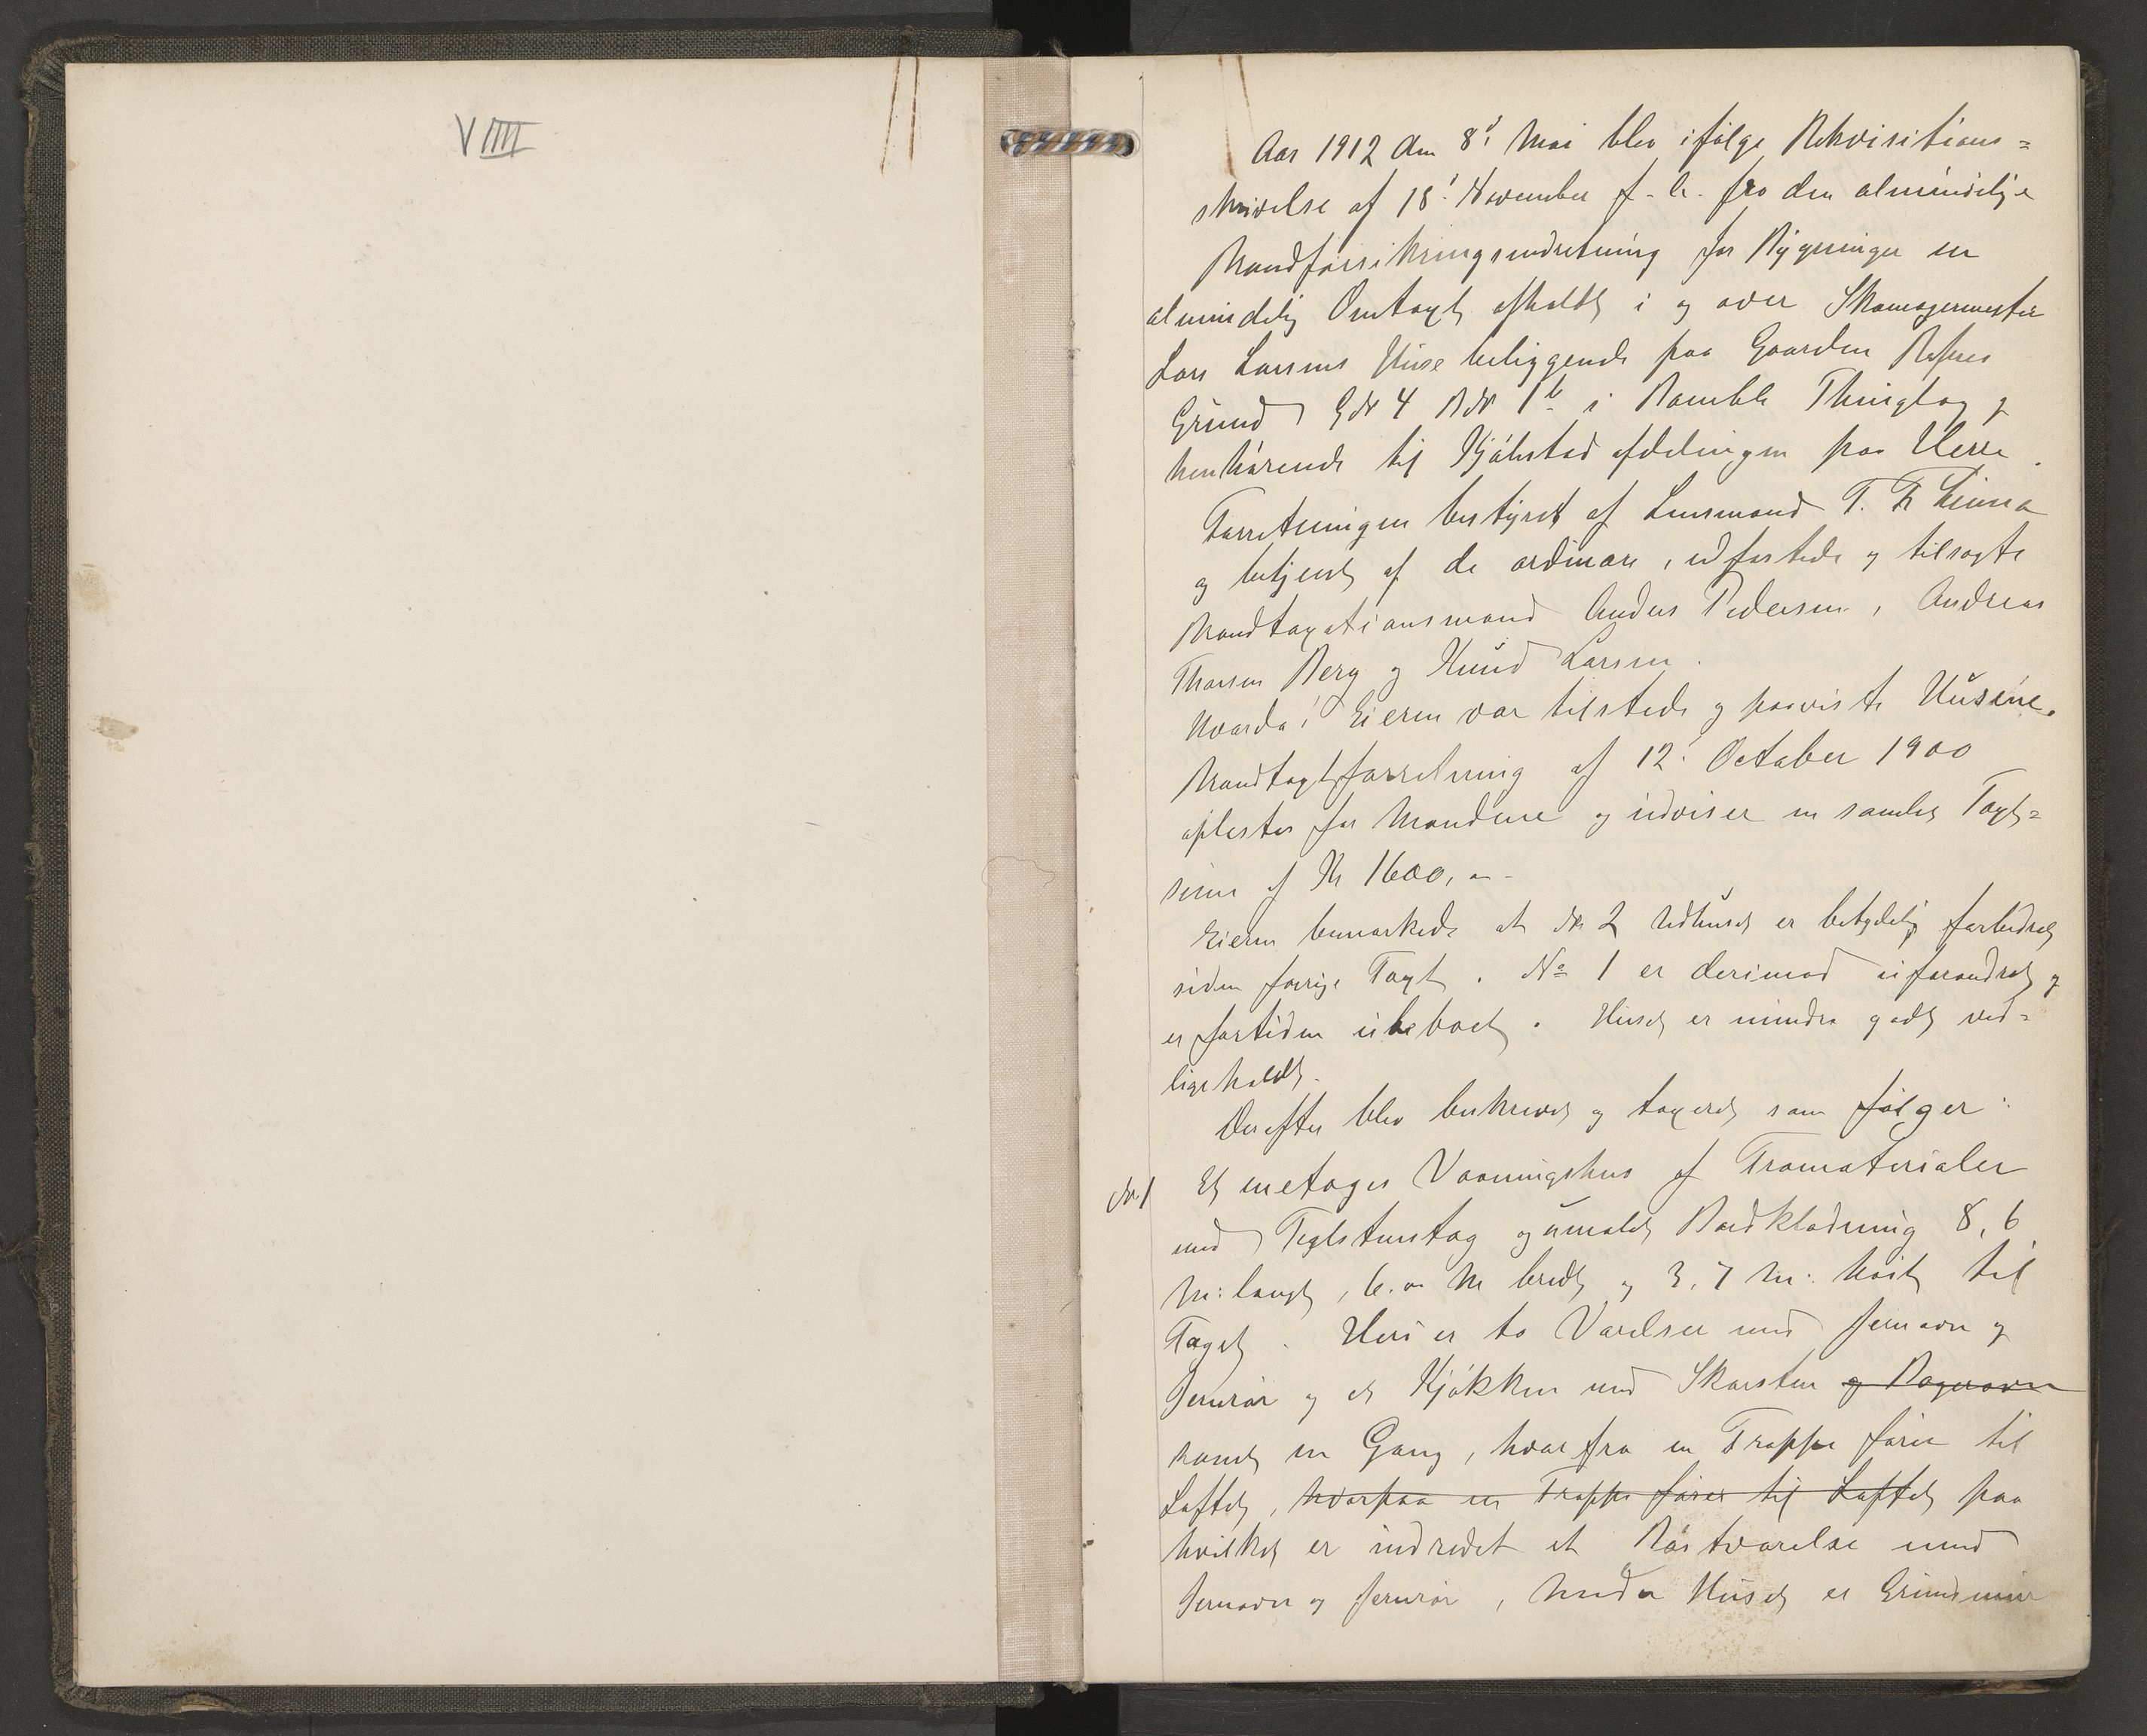 VIIII
Aar 1912 den 8d Mai blev ifølge Rekvisitions=
skrivelse af 18' November f. A. fra den almindelige
Brandforsikringsindretning for Bygninger en
almindelig Omtaxt afholdt i og over Skomagermester
Lars Larsens Huse beliggende paa Gaarden Rafnes
Grund GN 4 BN 1b i Bamble Thinglag og
henhørende til Kjøbstadafdelingen paa Herre.
Forretningen bestyret af Lensmand T. Fr Linna
og betjent af de ordinære, edfæstede og tilsagte
Brandtaxationsmænd Anders Pedersen, Andreas
Thorsen Berg og Knud Larsen.
Hvorda! Eieren var tilstede og paaviste Husene.
Brandtaxtforretning af 12' October 1900
oplæstes for Mændene og udviser en samlet Taxt=
sum af Kr 1600,00
Eieren bemærkede at No 2 Udhuset er betydelig forbedret
siden forrige Taxt. No 1 er derimod uforandret og
er fortiden ubeboet. Huset er mindre godt ved=
ligeholdt.
Derefter blev beskrevet og taxeret som følger:
No 1 Et enetages Vaaningshus af Træmaterialer
med Teglstenstag og umalet Bordklædning 8,6
M: langt, 6.00 M bredt og 3,7 M: høit til
Taget. Heri er to Værelser med Jernovn og
Jernrør og et Kjøkken med Skorsten og Bagerovn
samt en Gang, hvorfra en Trappe fører til
Loftet, hvorpaa en Trappe fører til Loftet paa
hvilket er indredet et Kvistværelse med
Jernovn og Jernrør, Under Huset er Grundmur